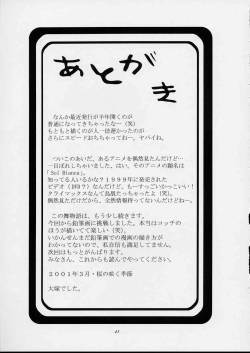 あとがき
なんか最近発行が半年開くのが
普通になってきちゃったなー（笑）
もともと描くのが人一倍遅かったのが
さらにスピードおちちゃってねー。ヤバイね。
ついこのあいだ、あるアニメを偶然見たんだけど…
一目ぼれしちゃいました。はい。そのアニメの題名は
「Sol Bianca」
知ってる人いるかな？１９９９年に発売された
ビデオ（計6？）なんだけど、もーすっごいかっこいい！
クライマックスなんて鳥肌たっちゃったよ（笑）
偶然見ただけだから、全然情報持ってないんだけどねー。
この舞物語は、もう少し続きます。
今回から鉛筆画に挑戦しました。本当はコッチの
ほうが描いてて楽しい（笑）。
いかんせんまだ鉛筆画での漫画の描き方が
わかってないので、私自信も満足してません。
次回はもっとがんばります。
みなさん、これからも読んでやってください。
２００１年３月・桜の咲く季節
大塚でした。